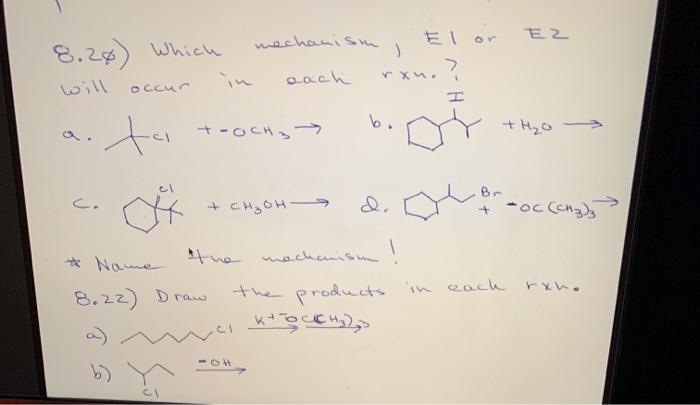 8.20) Which mechanism, E1 or E2
will occur in each rxn.?
a. Cl + -OCH3 → b. I + H2O →
c. Cl + CH3OH → d. Br + -OC(CH3)3 →
* Name the mechanism!
8.22) Draw the products in each rxn.
a) Cl K+-OC(CH3)3
b) Cl -OH